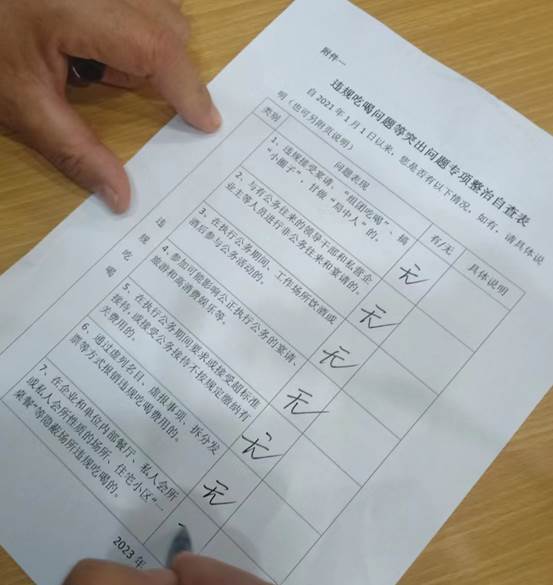 附件一
违规吃喝问题等突出问题专项整治自查表
自 2021 年 1 月 1 日以来，您是否有以下情况，如有，请具体说
明（也可另附页说明）
类别
问题表现
有/无
具体说明
违规吃喝
1、违规接受宴请、“组团吃喝”、搞
“小圈子”，甘做“局中人”的。
无
2、与有公务往来的领导干部和私营企
业主等人员进行非公务往来和宴请的。
无
3、在执行公务期间、工作场所饮酒或
酒后参与公务活动的。
无
4、参加可能影响公正执行公务的宴请、
旅游和高消费娱乐等。
无
5、在执行公务期间要求或接受超标准
接待，或接受公务接待不按规定缴纳有
关费用的。
无
6、通过虚列名目、虚报事项、拆分发
票等方式报销违规吃喝费用的。
无
7、在企业和单位内部餐厅、私人会所
或私人会所性质的场所、住宅小区“
桌餐”等隐蔽场所违规吃喝的。
2023 年